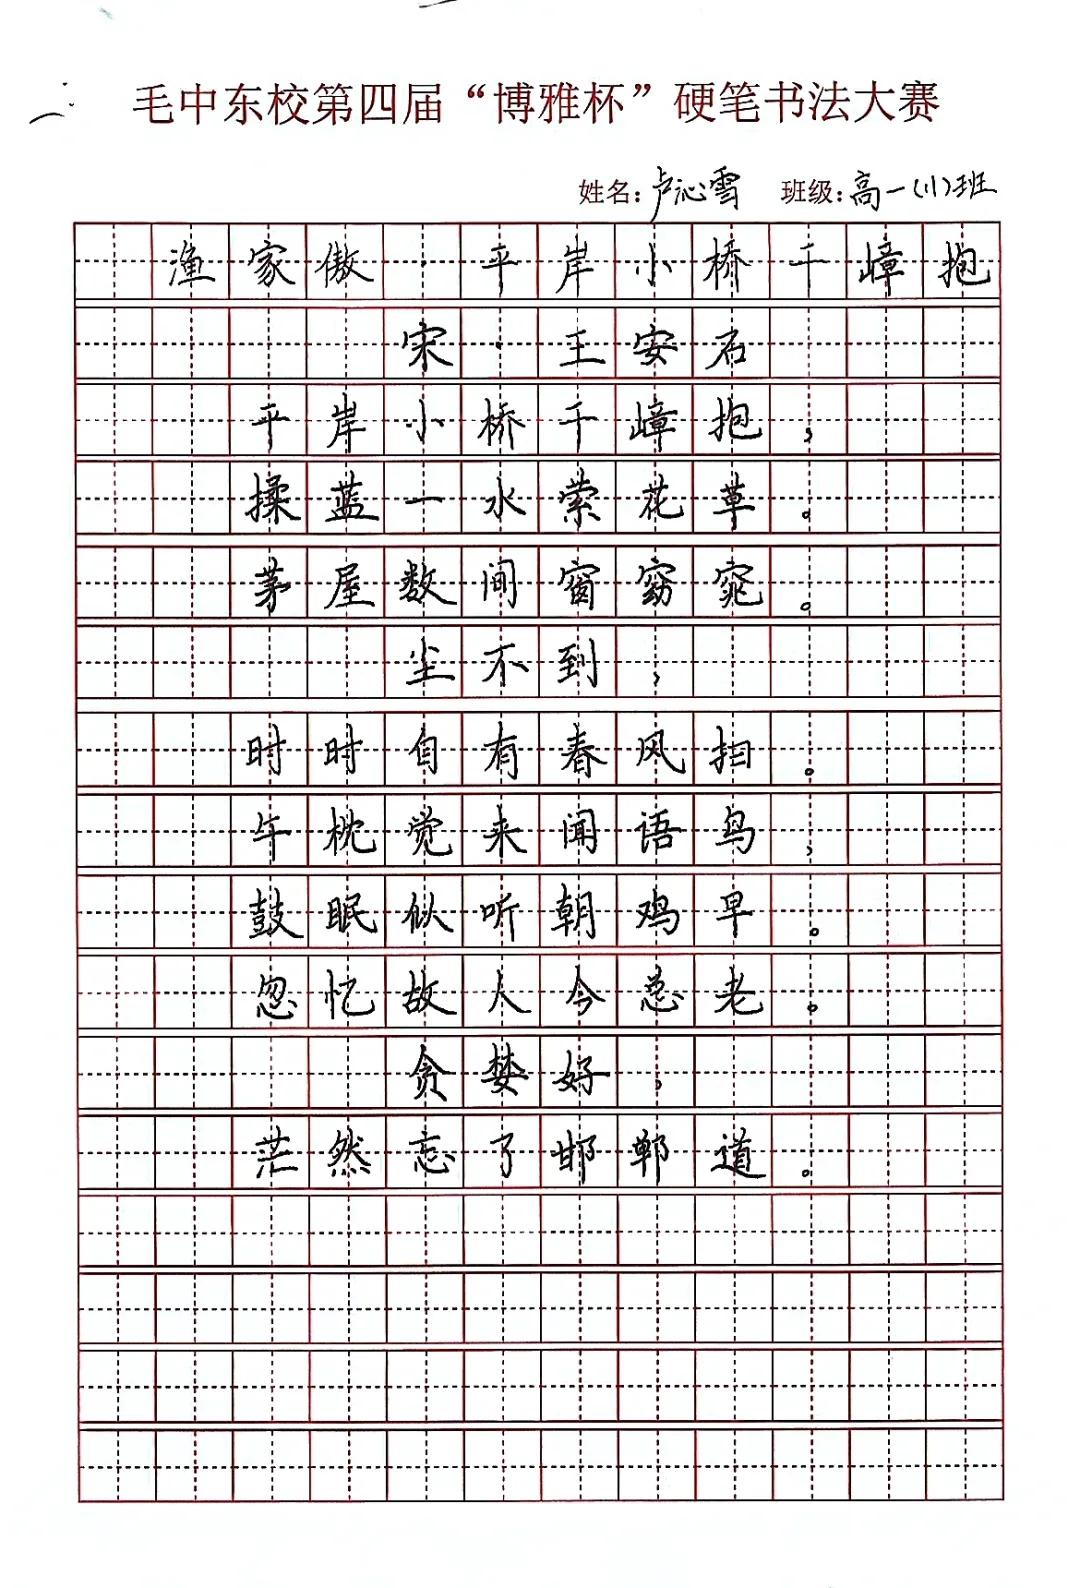 毛中东校第四届“博雅杯”硬笔书法大赛
姓名：卢沁雪 班级：高一（11）班
渔家傲·平岸小桥千嶂抱
宋·王安石
平岸小桥千嶂抱，
揉蓝一水萦花草。
茅屋数间窗窈窕。
尘不到，
时时自有春风扫。
午枕觉来闻语鸟，
鼓眠似听朝鸡早。
忽忆故人今总老。
贪婪好，
茫然忘了邯郸道。